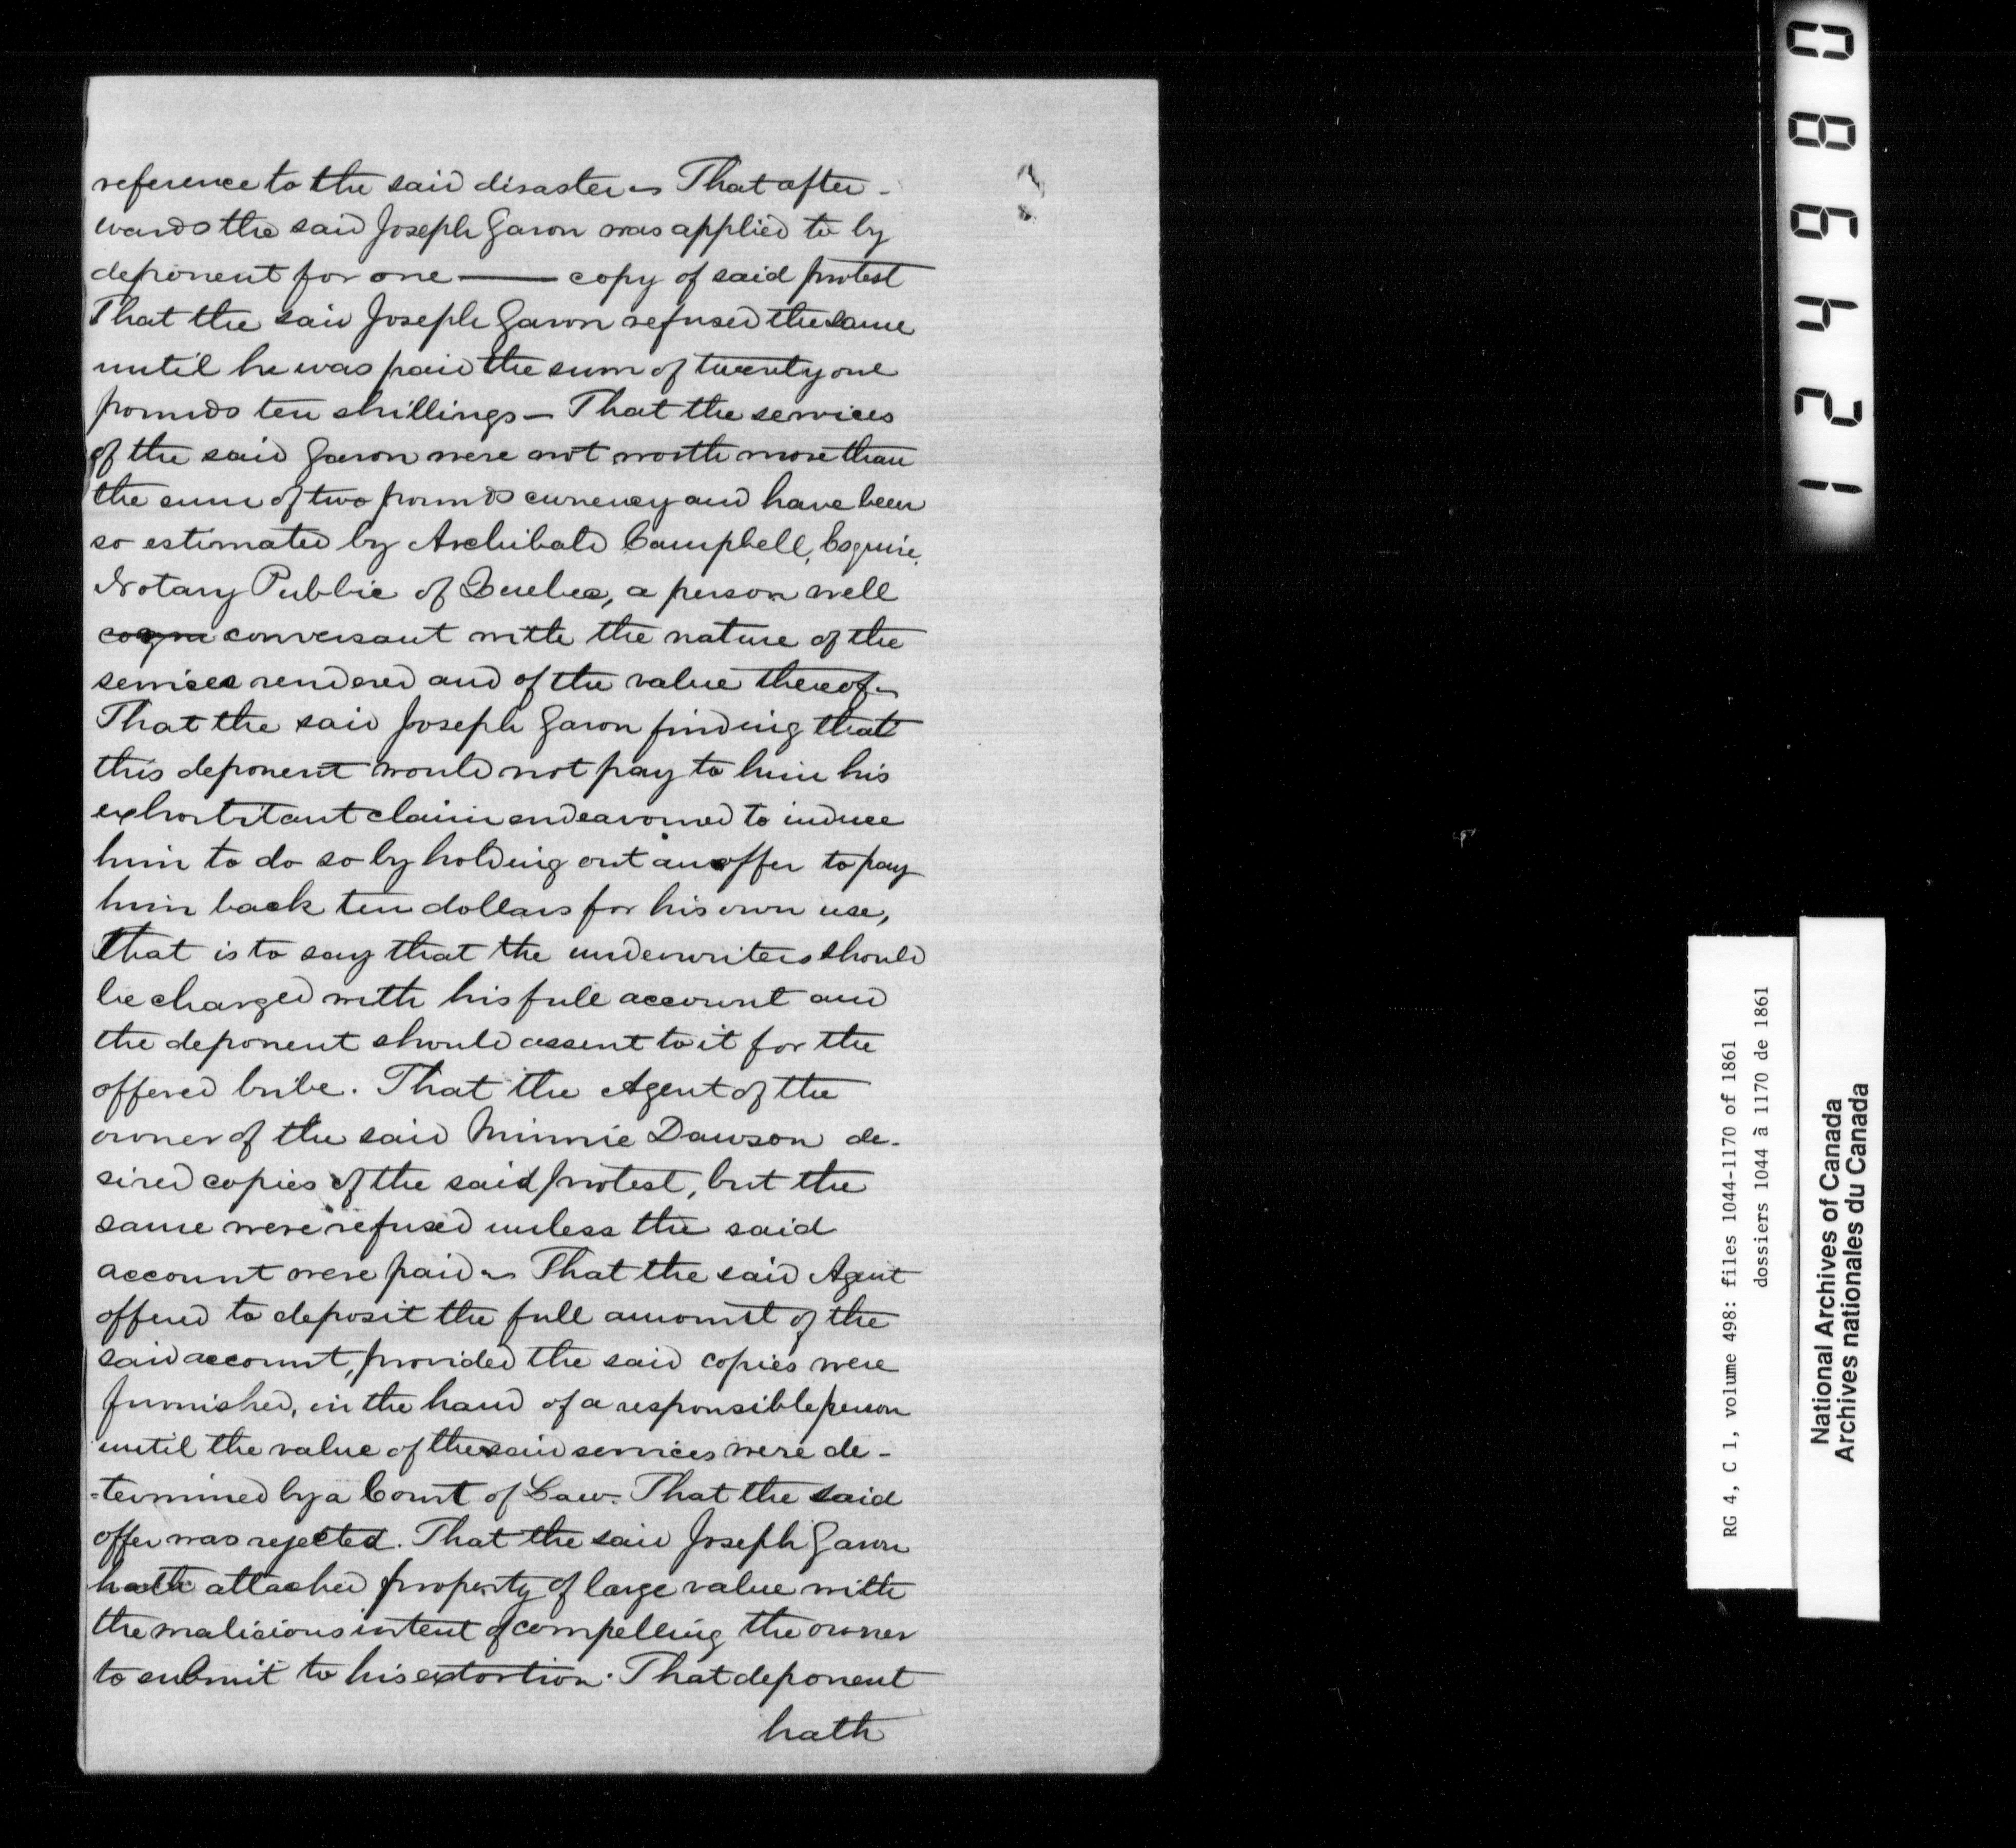 reference to the said disaster – That after-
wards the said Joseph Garon was applied to by
deponent for one —— copy of said protest
That the said Joseph Garon refused the same
until he was paid the sum of twenty one
pounds ten shillings – That the services
of the said Garon were not worth more than
the sum of two pounds currency and have been
so estimated by Archibald Campbell, Esquire,
Notary Public of Quebec, a person well
cogni conversant with the nature of the
services rendered and of the value thereof –
That the said Joseph Garon finding that
this deponent would not pay to him his
exhorbitant claim endeavoured to induce
him to do so by holding out an offer to pay
him back ten dollars for his own use,
that is to say that the underwriters should
be charged with his full account and
the deponent should assent to it for the
offered bribe. That the Agent of the
owner of the said Minnie Dawson de-
sired copies of the said protest, but the
same were refused unless the said
account were paid – That the said Agent
offered to deposit the full amount of the
said account, provided the said copies were
furnished, in the hand of a responsible person
until the value of the said services were de-
-termined by a Court of Law. That the said
offer was rejected. That the said Joseph Garon
hath attached property of large value with
the malicious intent of compelling the owner
to submit to his extortion. That deponent
hath
124690
RG 4, C 1, volume 498: files 1044-1170 of 1861
dossiers 1044 à 1170 de 1861
National Archives of Canada
Archives nationales du Canada